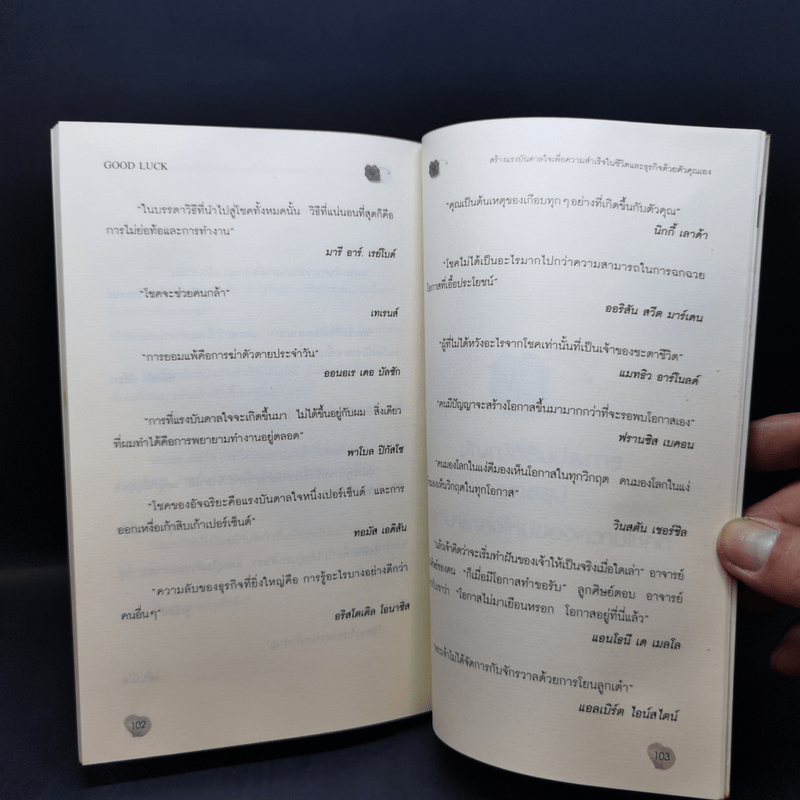 GOOD LUCK
"ในบรรดาวิธีที่นำไปสู่โชคทั้งหมดนั้น วิธีที่แน่นอนที่สุดก็คือ
การไม่ย่อท้อและการทำงาน"
มารี อาร์. เรย์โบด์
"โชคจะช่วยคนกล้า"
เทเรนส์
"การยอมแพ้คือการฆ่าตัวตายประจำวัน"
ออนอเร เดอ บัลซัก
"การที่แรงบันดาลใจจะเกิดขึ้นมา ไม่ได้ขึ้นอยู่กับผม สิ่งเดียว
ที่ผมทำได้คือการพยายามทำงานอยู่ตลอด"
พาโบล ปิกัสโซ
"โชคของอัจฉริยะคือแรงบันดาลใจหนึ่งเปอร์เซ็นต์ และการ
ออกเหงื่อเก้าสิบเก้าเปอร์เซ็นต์"
ทอมัส เอดิสัน
"ความลับของธุรกิจที่ยิ่งใหญ่คือ การรู้อะไรบางอย่างดีกว่า
คนอื่นๆ"
อริสโตเติล โอนาซิส
102
สร้างแรงบันดาลใจเพื่อความสำเร็จในชีวิตและธุรกิจด้วยตัวคุณเอง
"คุณเป็นต้นเหตุของเกือบทุกๆ อย่างที่เกิดขึ้นกับตัวคุณ"
นิกกี้ เลาด้า
"โชคไม่ได้เป็นอะไรมากไปกว่าความสามารถในการฉกฉวย
โอกาสที่เอื้อประโยชน์"
ออริสัน สวีต มาร์เดน
"ผู้ที่ไม่ได้หวังอะไรจากโชคเท่านั้นที่เป็นเจ้าของชะตาชีวิต"
แมทธิว อาร์โนลด์
"คนมีปัญญาจะสร้างโอกาสขึ้นมามากกว่าที่จะรอพบโอกาสเอง"
ฟรานซิส เบคอน
"คนมองโลกในแง่ดีมองเห็นโอกาสในทุกวิกฤต คนมองโลกในแง่
มองเห็นวิกฤตในทุกโอกาส"
วินสตัน เชอร์ชิล
"แล้วเจ้าคิดว่าจะเริ่มทำฝันของเจ้าให้เป็นจริงเมื่อใดเล่า" อาจารย์
ของตน "ก็เมื่อมีโอกาสทำขอรับ" ลูกศิษย์ตอบ อาจารย์
"โอกาสไม่มาเยือนหรอก โอกาสอยู่ที่นี่แล้ว"
แอนโธนี เด เมลโล
"พระเจ้าไม่ได้จัดการกับจักรวาลด้วยการโยนลูกเต๋า"
แอลเบิร์ต ไอน์สไตน์
103